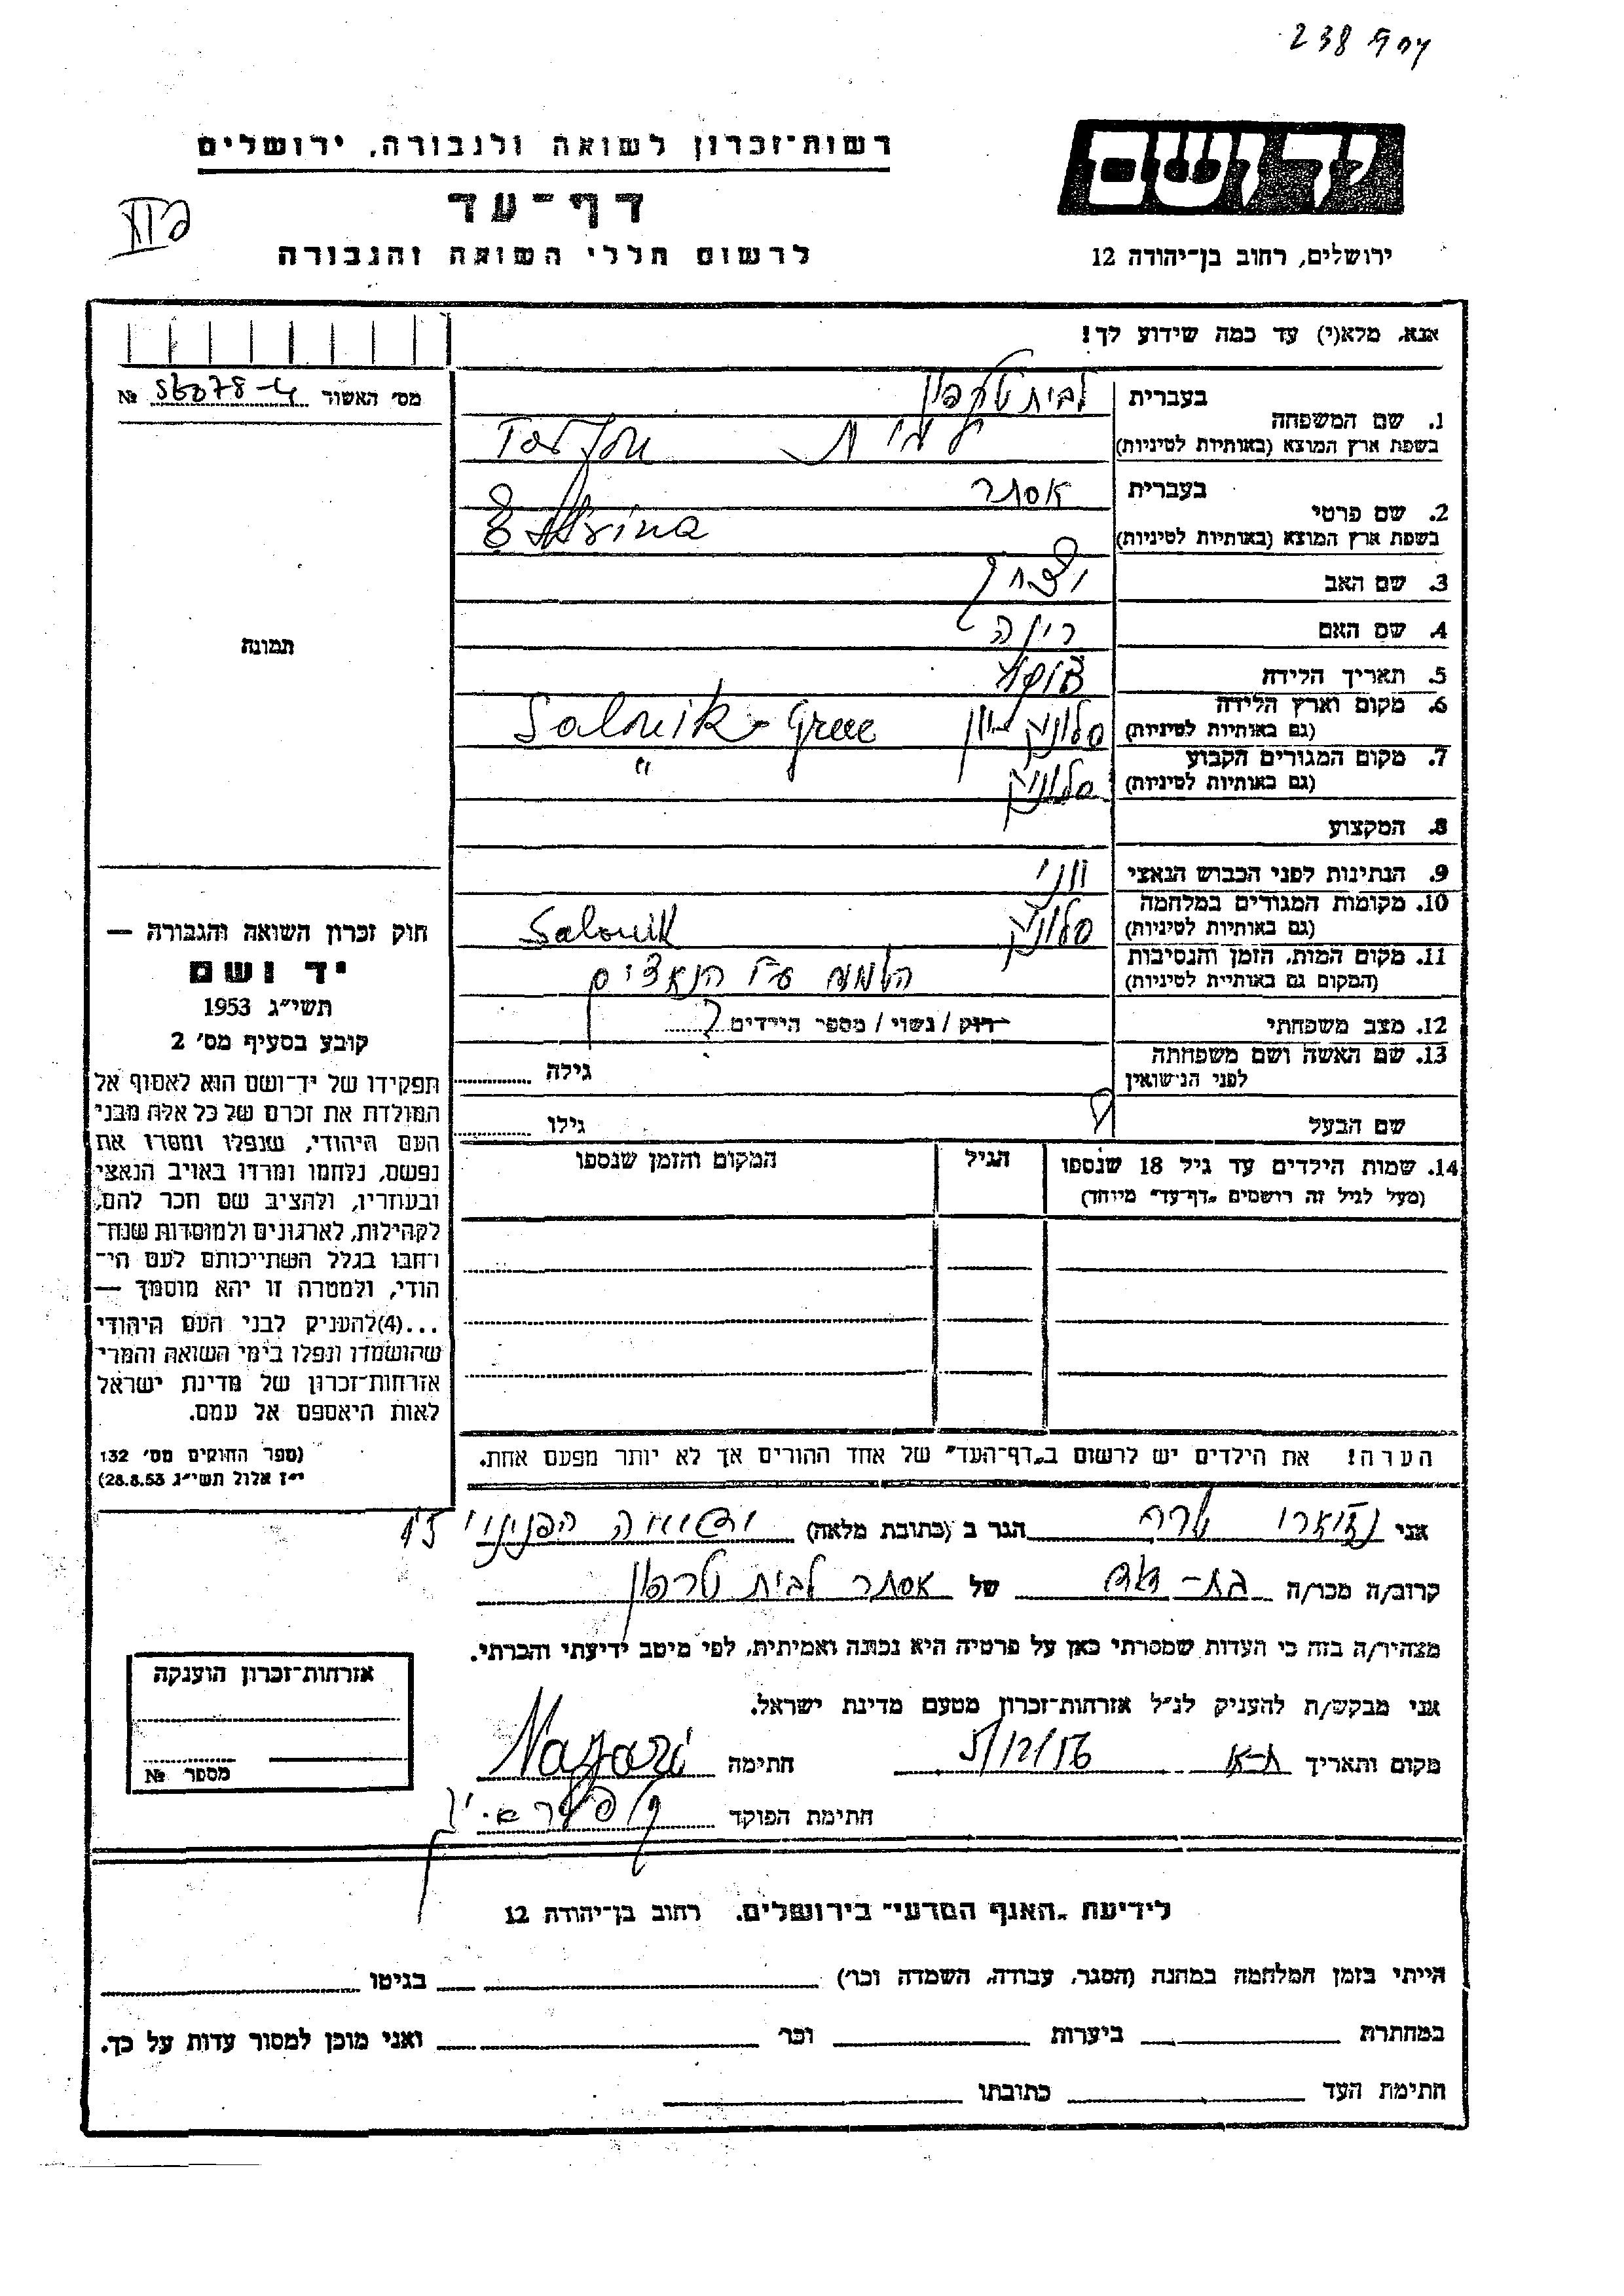 238
יד ושם
רשות־זכרון לשואה ולגבורה, ירושלים
דף־עד
לרשום חללי השואה והגבורה
ירושלים, רחוב בן־יהודה 12
אנא, מלא(י) עד כמה שידוע לך!
מס׳ האשור №
1. שם המשפחה
בעברית לבית טרפון
בשפת ארץ המוצא (באותיות לטיניות)
2. שם פרטי
בעברית אסתר
בשפת ארץ המוצא (באותיות לטיניות)
3. שם האב
4. שם האם רינה
5. תאריך הלידה
6. מקום וארץ הלידה
(גם באותיות לטיניות) סלוניק יוון Salonik - Greece
7. מקום המגורים הקבוע
(גם באותיות לטיניות) סלוניק "
8. המקצוע
9. הנתינות לפני הכבוש הנאצי יווני
10. מקומות המגורים במלחמה
(גם באותיות לטיניות) סלוניק Salonik
11. מקום המות, הזמן והנסיבות
(המקום גם באותיות לטיניות) הושמד ע"י הנאצים
12. מצב משפחתי רוק / נשוי / מספר הילדים ?
13. שם האשה ושם משפחתה
לפני הנישואין גילה
שם הבעל גילו
14. שמות הילדים עד גיל 18 שנספו
(מעל לגיל זה רושמים „דף־עד״ מיוחד)
הגיל
המקום והזמן שנספו
הערה! את הילדים יש לרשום ב„דף־העד״ של אחד ההורים אך לא יותר מפעם אחת.
תמונה
חוק זכרון השואה והגבורה —
יד ושם
תשי״ג 1953
קובע בסעיף מס׳ 2
תפקידו של יד־ושם הוא לאסוף אל
המולדת את זכרם של כל אלה מבני
העם היהודי, שנפלו ומסרו את
נפשם, נלחמו ומרדו באויב הנאצי
ובעוזריו, ולהציב שם וזכר להם,
לקהילות, לארגונים ולמוסדות שנח־
רהבו בגלל השתייכותם לעם הי־
הודי, ולמטרה זו יהא מוסמך —
...(4)להעניק לבני העם היהודי
שהושמדו ונפלו בימי השואה והמרי
אזרחות־זכרון של מדינת ישראל
לאות היאספם אל עמם.
(ספר החוקים מס׳ 132
י״ז אלול תשי״ג 28.8.53)
אני הגר ב (כתובת מלאה)
קרוב/ה מכר/ה בת־דוד של אסתר לבית טרפון
מצהיר/ה בזה כי העדות שמסרתי כאן על פרטיה היא נכונה ואמיתית, לפי מיטב ידיעתי והכרתי.
אני מבקש/ת להעניק לנ״ל אזרחות־זכרון מטעם מדינת ישראל.
מקום ותאריך ת-א 5/12/56 חתימה
חתימת הפוקד
אזרחות־זכרון הוענקה
מספר №
לידיעת „האגף המדעי״ בירושלים, רחוב בן־יהודה 12
הייתי בזמן המלחמה במחנה (הסגר, עבודה, השמדה וכו׳) בגיטו
במחתרת ביערות וכו׳ ואני מוכן למסור עדות על כך.
חתימת העד כתובתו